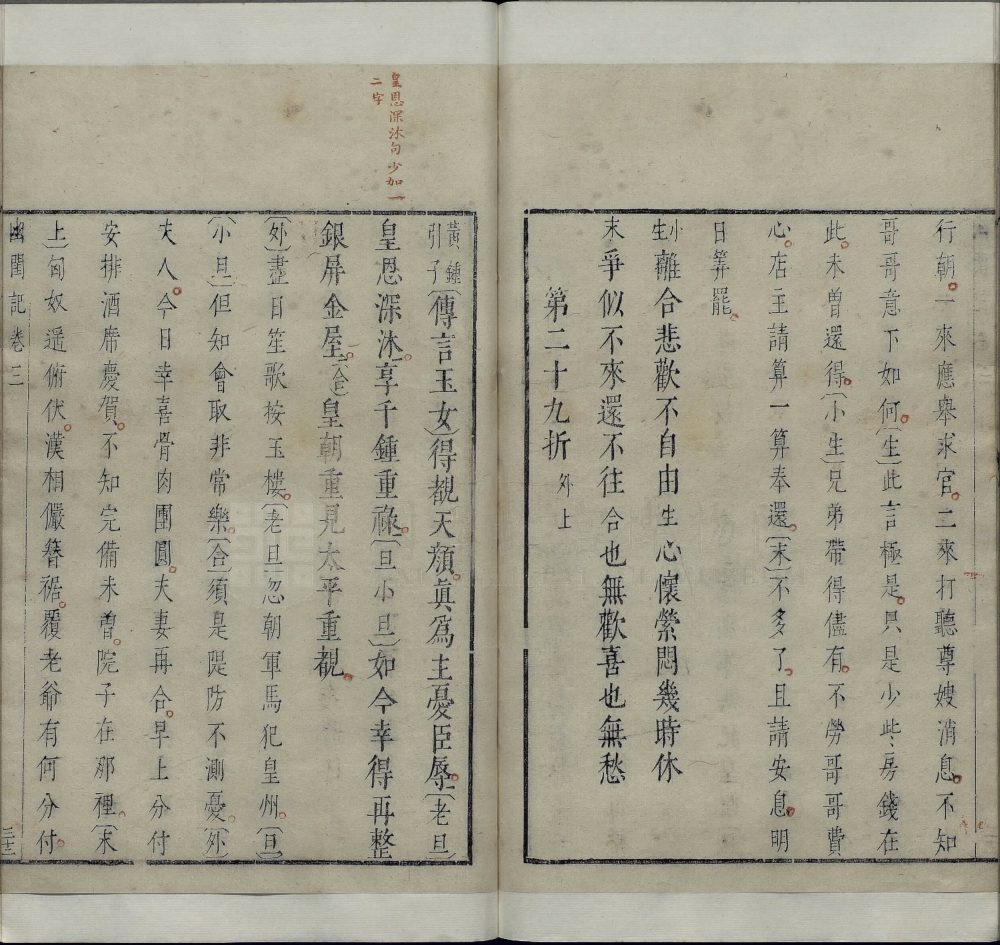 行朝一來應舉求官二來打聽尊嫂消息不知
哥哥意下如何〔生〕此言極是只是少些房錢在
此未曾還得〔小生〕兄弟帶得儘有不勞哥哥費
心店主請算一算奉還〔末〕不多了且請安息明
日算罷
小生離合悲歡不自由生心懷縈悶幾時休
末爭似不來還不往合也無歡喜也無愁
第二十九折 外上
皇恩深沐句少加一
二字
黃鍾引子〔傳言玉女〕得覩天顏眞爲主憂臣辱〔老旦〕
皇恩深沐享千鍾重祿〔旦小旦〕如今幸得再整
銀屏金屋〔合〕皇朝重見太平重覩
〔外〕盡日笙歌按玉樓〔老旦〕忽朝軍馬犯皇州〔旦
小旦〕但知會取非常樂〔合〕須是隄防不測憂〔外〕
夫人今日幸喜骨肉團圓夫妻再合早上分付
安排酒席慶賀不知完備未曾院子在那裡〔末
上〕匈奴遥俯伏漢相儼簪裾覆老爺有何分付
幽閨記卷三
三三